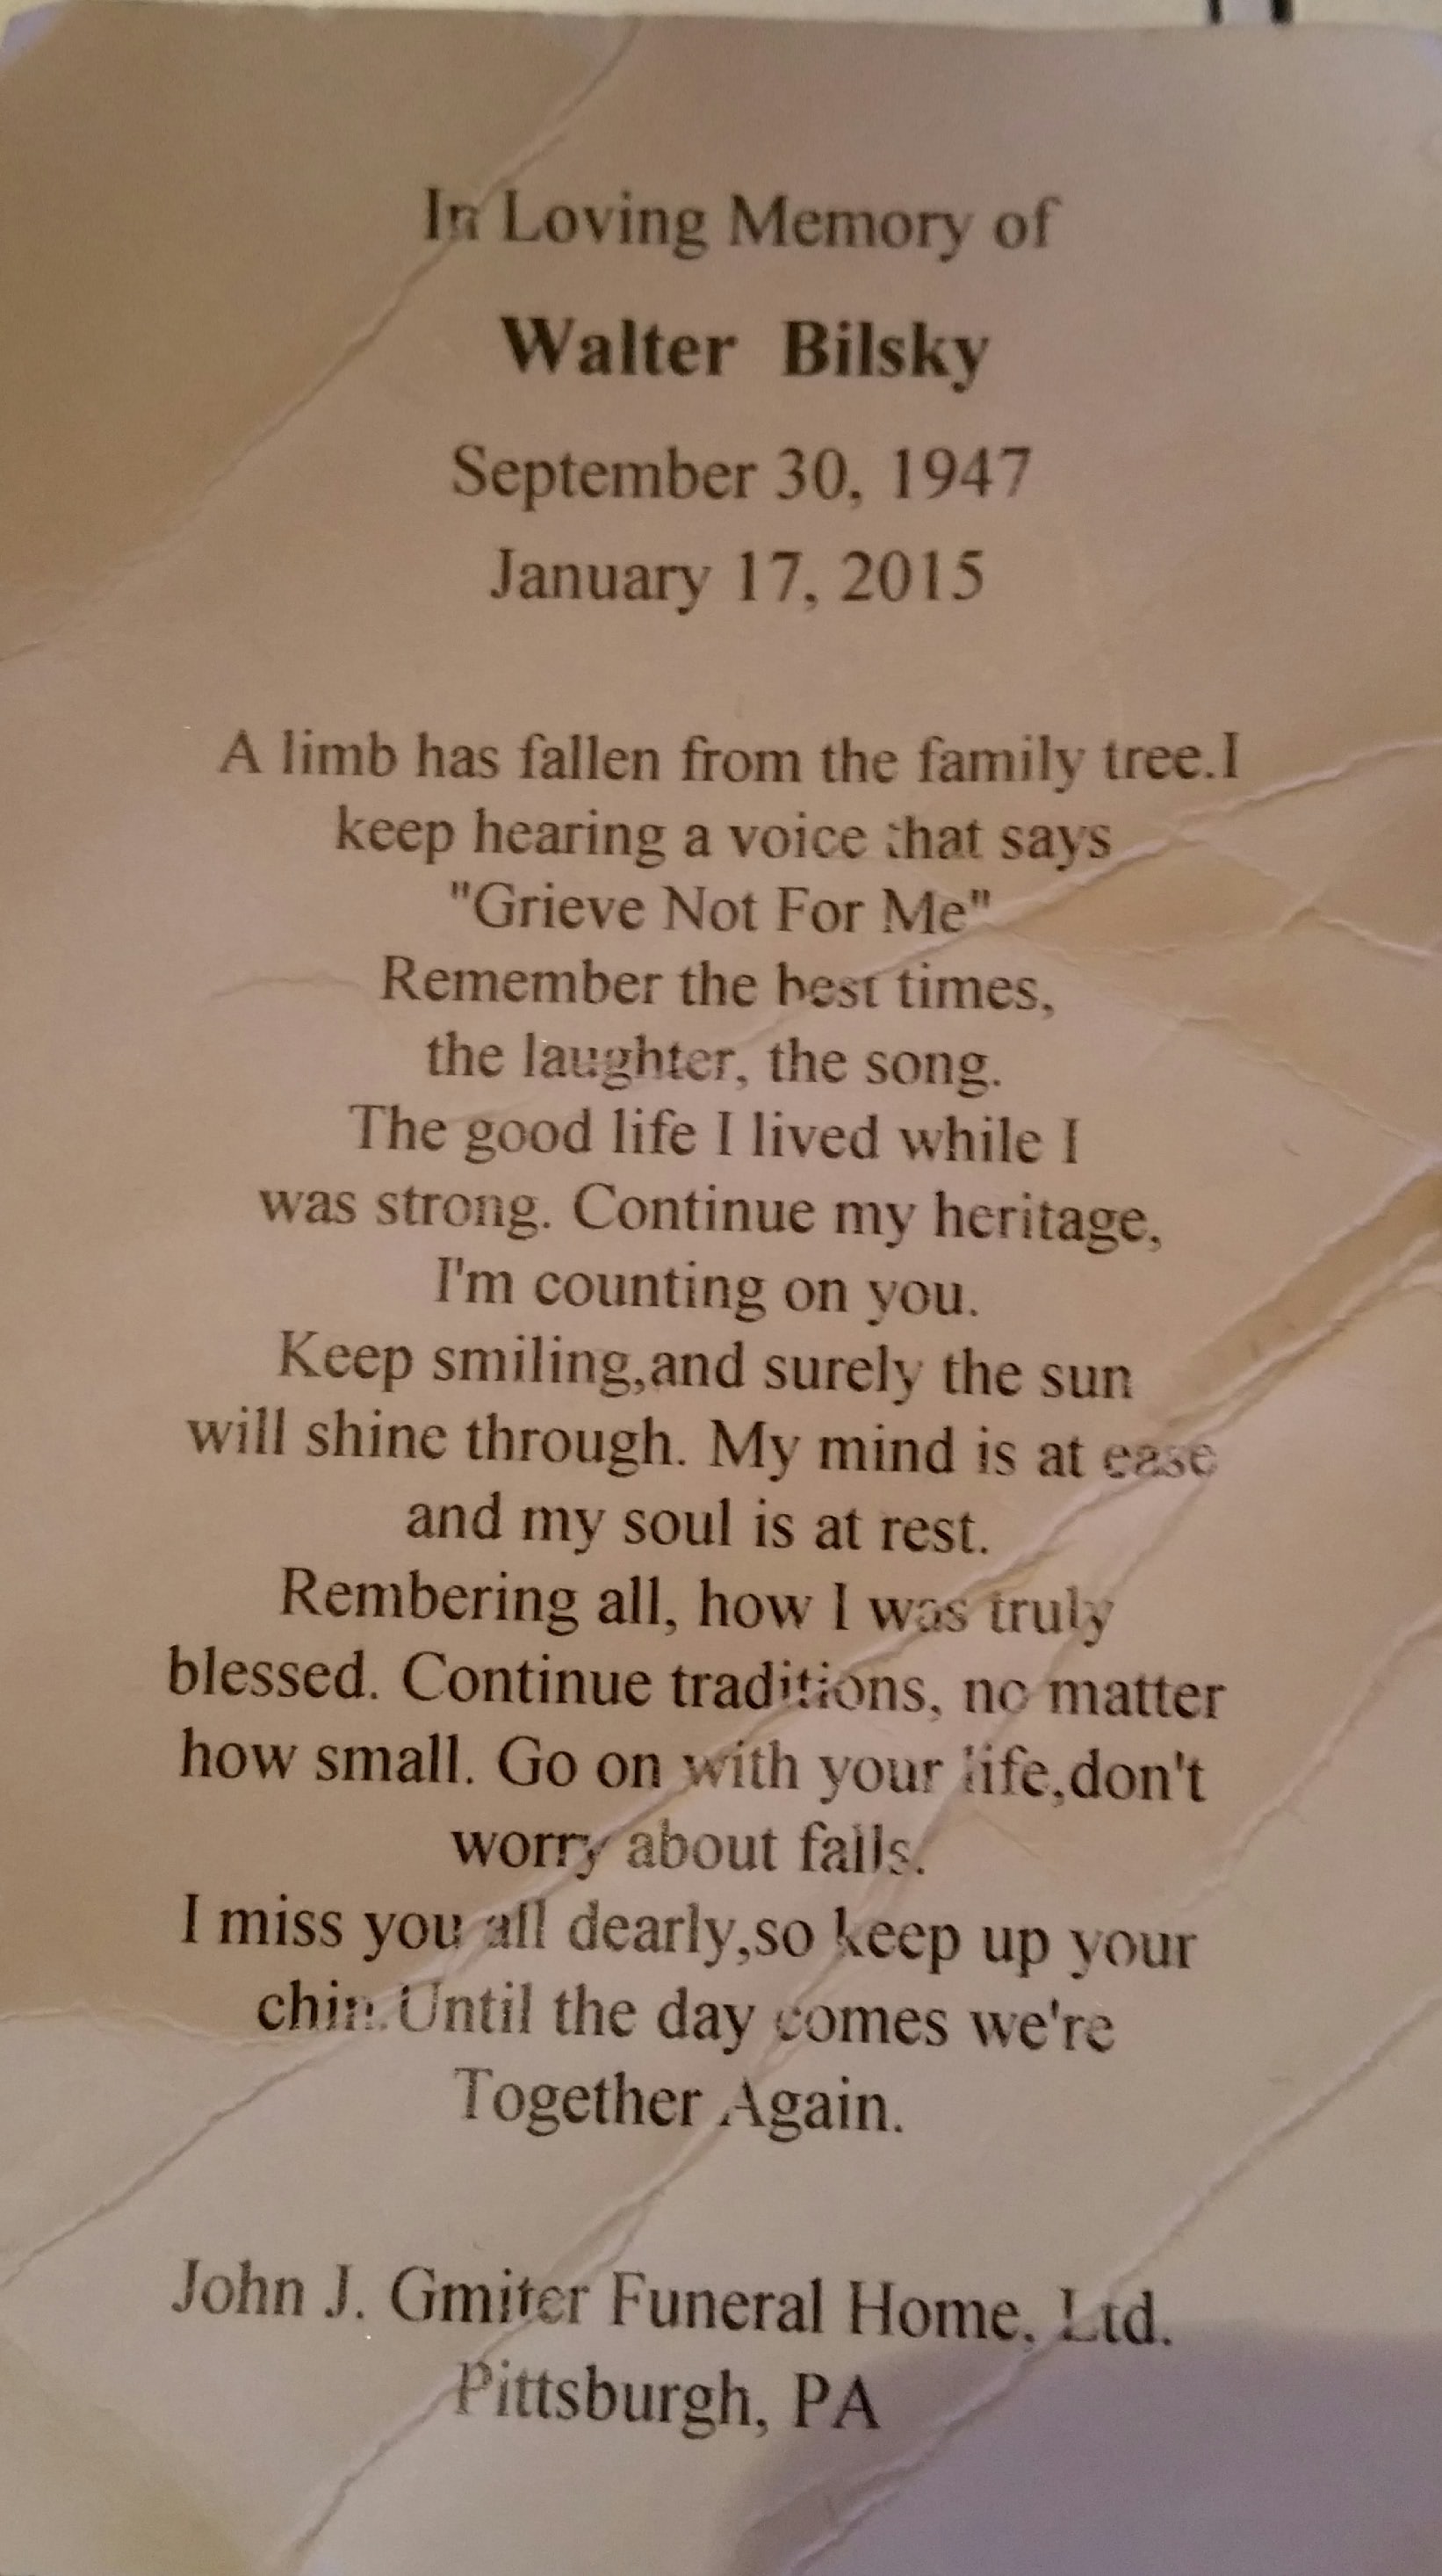 In Loving Memory of
Walter Bilsky
September 30, 1947
January 17, 2015
A limb has fallen from the family tree.I
keep hearing a voice that says
"Grieve Not For Me"
Remember the best times,
the laughter, the song.
The good life I lived while I
was strong. Continue my heritage,
I'm counting on you.
Keep smiling,and surely the sun
will shine through. My mind is at ease
and my soul is at rest.
Rembering all, how I was truly
blessed. Continue traditions, no matter
how small. Go on with your life,don't
worry about falls.
I miss you all dearly,so keep up your
chin.Until the day comes we're
Together Again.
John J. Gmiter Funeral Home, Ltd.
Pittsburgh, PA